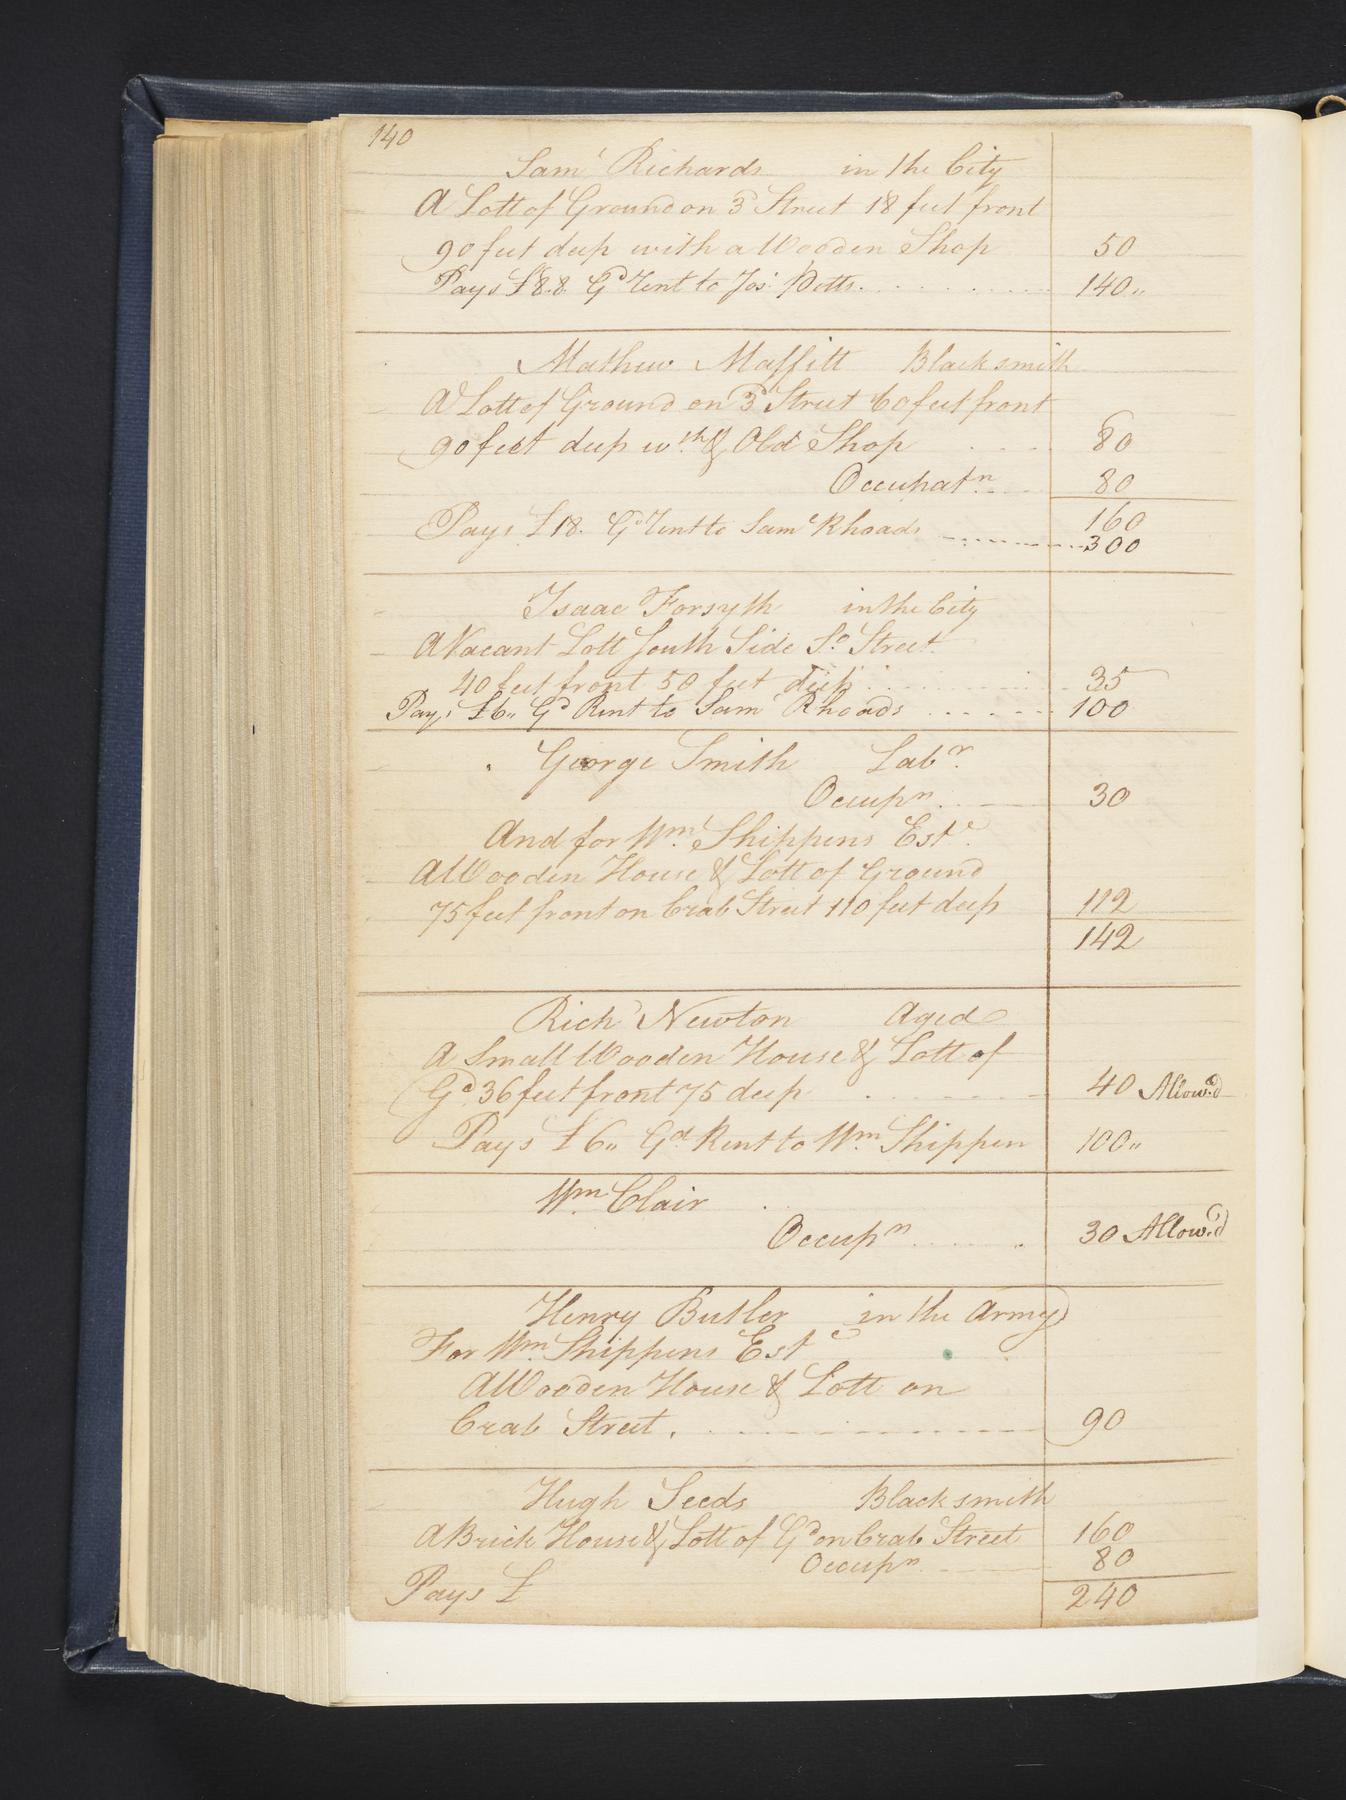 140
Saml Richards in the City
A Lott of Ground on 3d Street 18 feet front
90 feet deep with a Wooden Shop 50
Pays £8.8. Gd Rent to Jos: Potts. 140,,
Mathew Maffitt Blacksmith
A Lott of Ground on 3d Street 60 feet front
90 feet deep wth & Old Shop 80
Occupatn 80
160
Pays £18. Gd Rent to Saml Rhoads 300
Isaac Forsyth in the City
A Vacant Lott South Side So Street
40 feet front 50 feet deep 35
Pays £6,, Gd Rent to Sam Rhoads 100
George Smith Labr.
Occupn. 30
And for Wm. Shippens Este.
A Wooden House & Lott of Ground
75 feet front on Crab Street 110 feet deep 112
142
Richd Newton Aged
A Small Wooden House & Lott of
Gd 36 feet front 75 deep 40 Allow'd
Pays £6,, Gd Rent to Wm. Shippen 100,,
Wm. Clair
Occupn 30 Allow'd
Henry Butler in the Army
For Wm. Shippens Este
A Wooden House & Lott on
Crab Street. 90
Hugh Seeds Blacksmith
A Brick House & Lott of Gd on Crab Street 160
Occupn 80
Pays £ 240